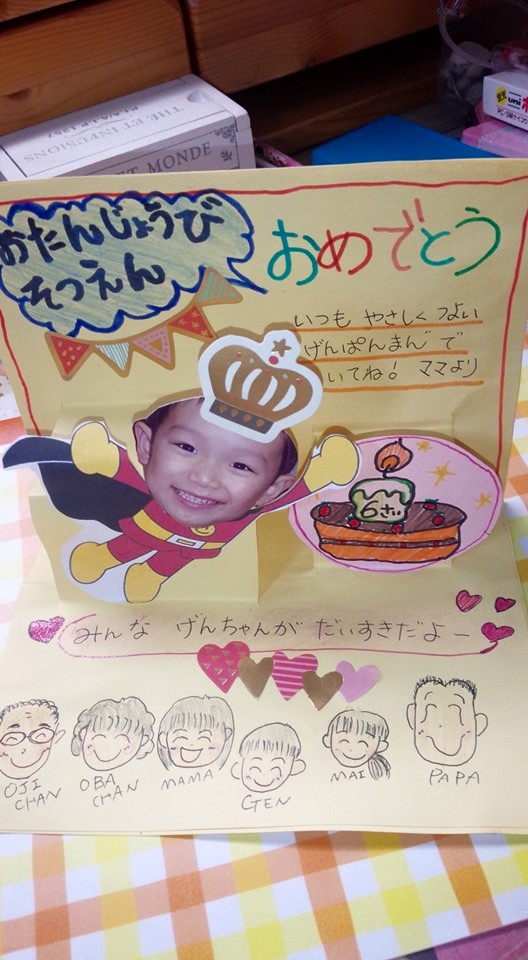 THE ET INFUSIONS
ET MONDE
uni
PC-5M
おたんじょうび
そつえん
おめでとう
いつも やさしく つよい
げんぱんまん で
いてね! ママより
6さい
みんな げんちゃんが だいすきだよー
OJI
CHAN
OBA
CHAN
MAMA
GEN
MAI
PAPA